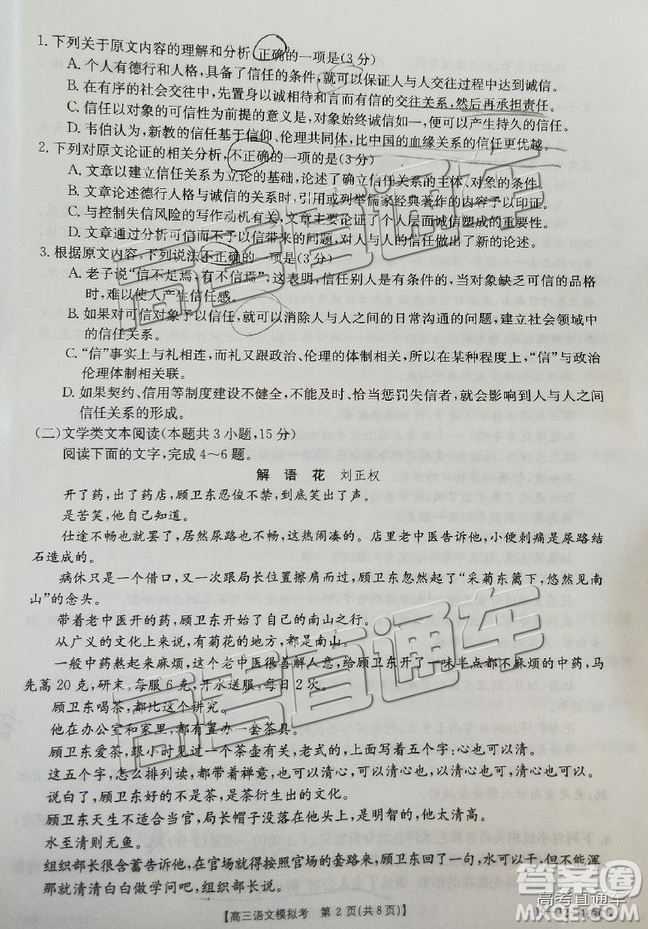 1. 下列关于原文内容的理解和分析,正确的一项是(3分)
A. 个人有德行和人格,具备了信任的条件,就可以保证人与人交往过程中达到诚信。
B. 在有序的社会交往中,先置身以诚相待和言而有信的交往关系,然后再承担责任。
C. 信任以对象的可信性为前提的意义是,对象始终诚信如一,避免不可信任的可能。
D. 韦伯认为,新教的信任基于信仰、伦理共同体,比中国的血缘关系的信任更优越。
2. 下列对原文论证的相关分析,不正确的一项的是(3分)
A. 文章以建立信任关系为立论的基础,论述了信任关系的主体、对象及
B. 文章论述德行人格与诚信的关系时,引用或列举儒家经典著作的内容予以印证。
C. 与控制失信风险的写作动机有关,文章主要论证了个人层面诚信塑成的重要性。
D. 文章通过分析可信而不信带来的问题,对人与人的交往做出了新的论述。
3. 根据原文内容,下列说法不正确的一项是(3分)
A. 老子说“信不足焉,有不信焉”,这表明,信任别人是有条件的,当对象缺乏可信的品格
时,难以使人产生信任感。
B. 如果对可信对象予以信任,就可以消除人与人之间的日常沟通的问题,建立社会领域中
的信任关系。
C. “信”事实上与礼相连,而礼又跟政治、伦理的体制相关联,所以在某种程度上,“信”与政治
伦理体制相关联。
D. 如果契约、信用等制度建设不健全,不能恰当惩罚失信者,就会影响到人与人之间
信任关系的形成。
(二)文学类文本阅读(本题共3小题,15分)
阅读下面的文字,完成4~6题。
解语花 刘正权
开了药,出了药店,顾卫东忍俊不禁,到底笑出了声。
是苦笑,他自己知道。
仕途不畅也就罢了,居然尿路不也畅,这是热闹凑的。店里老中医告诉他,小便刺痛是尿路结
石造成的。
病休只是一个借口,又一次跟局长位置擦肩而过,顾卫东忽然起了“采菊东篱下,悠然见南
山”的念头。
带着老中医开的药,顾卫东开始了自己的南山之行。
从广义的文化上来说,有菊花的地方,都是南山。
一般中药熬起来麻烦,这个老中医很善解人意,给顾卫东开了一味半点都不麻烦的中药,马
先蒿20克,研末,每服6克,开水送服,每日2次。
顾卫东喝茶,都比这个讲究。
他在办公室和家里,都有置办一套茶具。
顾卫东爱茶,跟小时见过一个茶壶有关,老式的,上面写着五个字;心也可以清。
这五个字,怎么排列读,都带着禅意,也可以清心,可以清心也,以清心也可,清心也可以。
说白了,顾卫东好的不是茶,是茶衍生出的文化。
顾卫东天生不适合当官,局长帽子没落到他头上,是明智的,他太清心。
水至清则无鱼。
组织部长很含蓄告诉他,在官场就得按照官场的套路来,顾卫东回了一句,水可以干,但不能浑
那就清清白白做你的学问吧,组织部长
【高三语文模拟考 第2页(共8页)】
高考直通车
答案圈